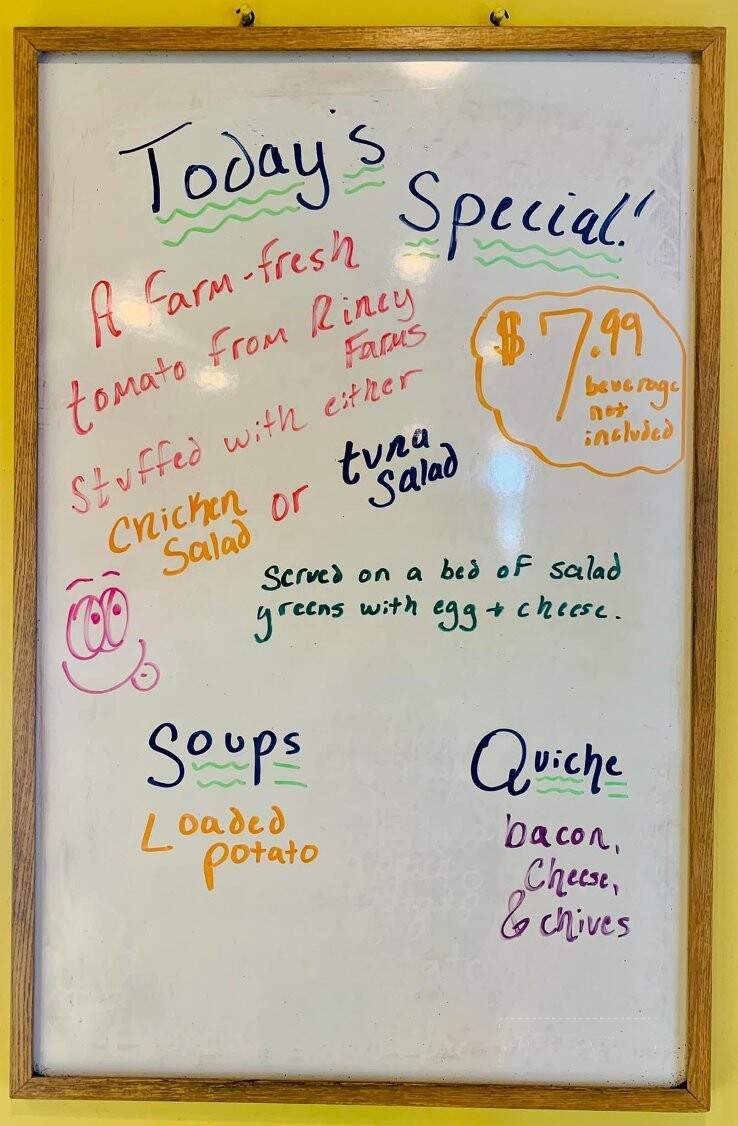 Today's
Special!
A farm-fresh
tomato from Riney
Farms
$7.99
beverage
not
included
Stuffed with either
chicken
Salad
or
tuna
Salad
Served on a bed of salad
greens with egg + cheese.
Soups
Loaded
potato
Quiche
bacon,
Cheese,
& chives